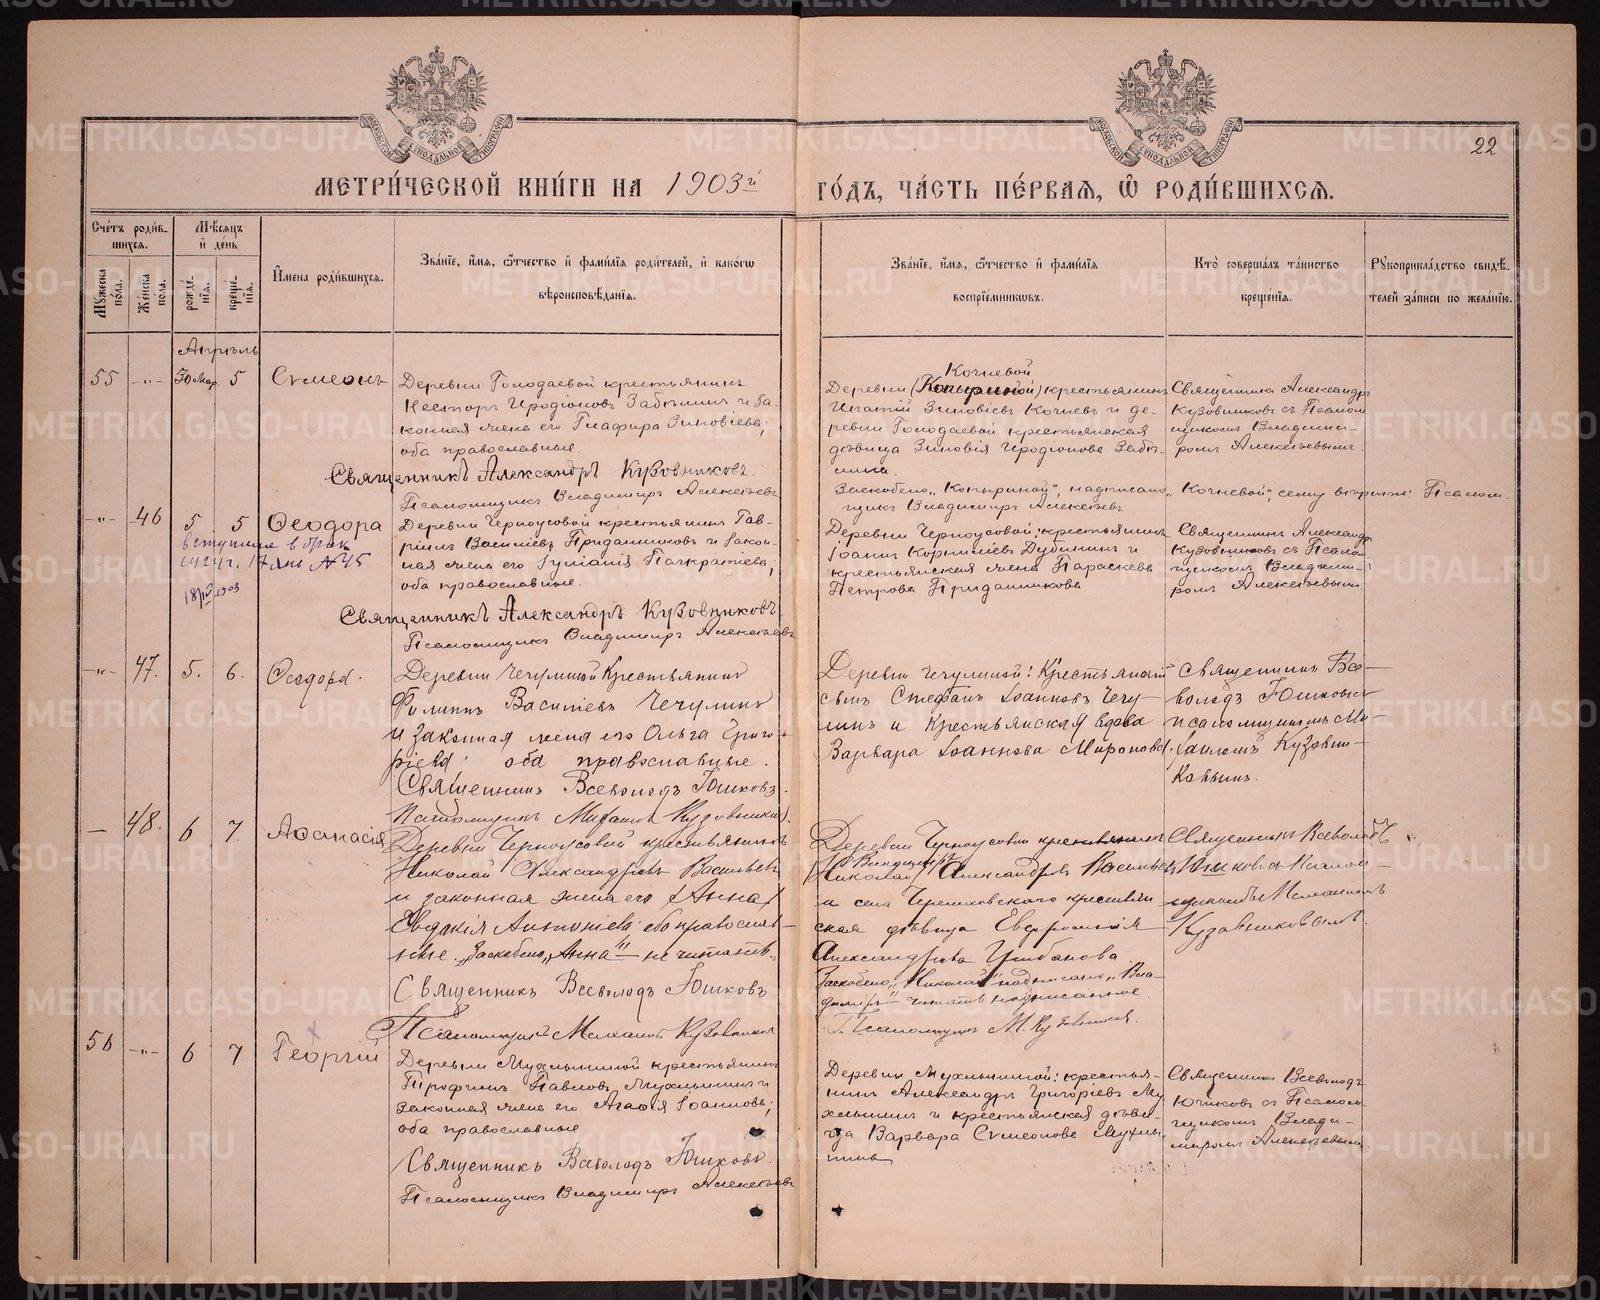 МЕТРИ́ЧЕСКОЙ КНИ́ГИ НА 1903й ГО́ДЪ, ЧА́СТЬ ПЕ́РВАЯ, Ѡ РОДИ́ВШИХСЯ.
22
Сче́тъ роди́вшихся.
Мѣ́сяцъ и де́нь
Му́жеска по́ла.
Же́нска по́ла.
рожде́нїя.
креще́нїя.
И́мена роди́вшихся.
Зва́нїе, и́мя, ѻ́тчество и фами́лїя роди́телей, и како́гѡ
вѣроисповѣ́данїя.
Зва́нїе, и́мя, ѻ́тчество и фами́лїя
воспрїе́мникѡвъ.
Кто̀ соверша́лъ та́инство
креще́нїя.
Рукоприкла́дство свидѣ́телей за́писи по жела́нїю.
Апрѣль
55 -"- 30 Мар. 5 Симеонъ
Деревни Голодаевой крестьянинъ
Несторъ Иродіоновъ Забѣлинъ и за-
конная жена его Глафира Зиновіева;
оба православные.
Священникъ Александръ Кузовниковъ.
Псаломщикъ Владимиръ Алексѣевъ
Кочневой
Деревни (Копыриной) крестьянинъ
Игнатій Зиновіевъ Кочневъ и де-
ревни Голодаевой крестьянская
дѣвица Зиновія Иродіонова Забѣ-
лина.
Заскоблено „Копыриной", надписано „Кочневой", сему вѣрить: Псалом-
щикъ Владимиръ Алексѣевъ
Священникъ Александръ
Кузовниковъ съ Псалом-
щикомъ Владими-
ромъ Алексѣевымъ.
-"- 46 5 5 Ѳеодора
вступила в брак
1924 г. 17 янв №45
Деревни Черноусовой крестьянинъ Гав-
ріилъ Васильевъ Приданниковъ и закон-
ная жена его Іуліанія Панкратіева;
оба православные.
Священникъ Александръ Кузовниковъ
Псаломщикъ Владимиръ Алексѣевъ
Деревни Черноусовой крестьянинъ
Іоаннъ Корниліевъ Дубининъ и
крестьянская жена Параскева
Петрова Приданникова
Священникъ Александръ
Кузовниковъ съ Псалом-
щикомъ Владими-
ромъ Алексѣевымъ.
-"- 47. 5. 6. Ѳеодора.
Деревни Чечулиной Крестьянинъ
Филиппъ Васильевъ Чечулинъ
и законная жена его Ольга Григо-
ріева; оба православные.
Священникъ Всеволодъ Юшковъ.
Псаломщикъ Михаилъ Кузовниковъ.
Деревни Чечулиной: Крестьянскій
сынъ Стефанъ Іоанновъ Чечу-
линъ и Крестьянская вдова
Варвара Іоаннова Миронова.
Священникъ Все-
володъ Юшковъ съ
псаломщикомъ Ми-
хаиломъ Кузовни-
ковымъ.
— 48. 6 7 Аѳанасія
Деревни Черноусовой крестьянинъ
Николай Александровъ Васильевъ
и законная жена его (Анна)
Евдокія Антоніева оба православ-
ные. Заскоблено „Анна" — не читать.
Священникъ Всеволодъ Юшковъ
Псаломщикъ Михаилъ Кузовниковъ
Деревни Черноусовой крестьянинъ
Владимиръ
(Николай) Александровъ Васильевъ
и села Черемховского крестьян-
ская дѣвица Евфросинія
Александрова Цыбанова.
Заскоблено „Николай" надписано „Вла-
димиръ" — читать надписанное.
Псаломщикъ М. Кузовниковъ.
Священникъ Всеволодъ
Юшковъ съ Псалом-
щикомъ Михаиломъ
Кузовниковымъ.
56 -"- 6 7 Георгій
Деревни Мухлыниной крестьянинъ
Трофимъ Павловъ Мухлынинъ и
законная жена его Агаѳія Іоаннова;
оба православные
Священникъ Всеволодъ Юшковъ.
Псаломщикъ Владимиръ Алексѣевъ
Деревни Мухлыниной: крестья-
нинъ Александръ Григоріевъ Му-
хлынинъ и крестьянская дѣви-
ца Варвара Симеонова Мухлы-
нина
Священникъ Всеволодъ
Юшковъ съ Псалом-
щикомъ Влади-
миромъ Алексѣевымъ
METRIKI.GASO-URAL.RU